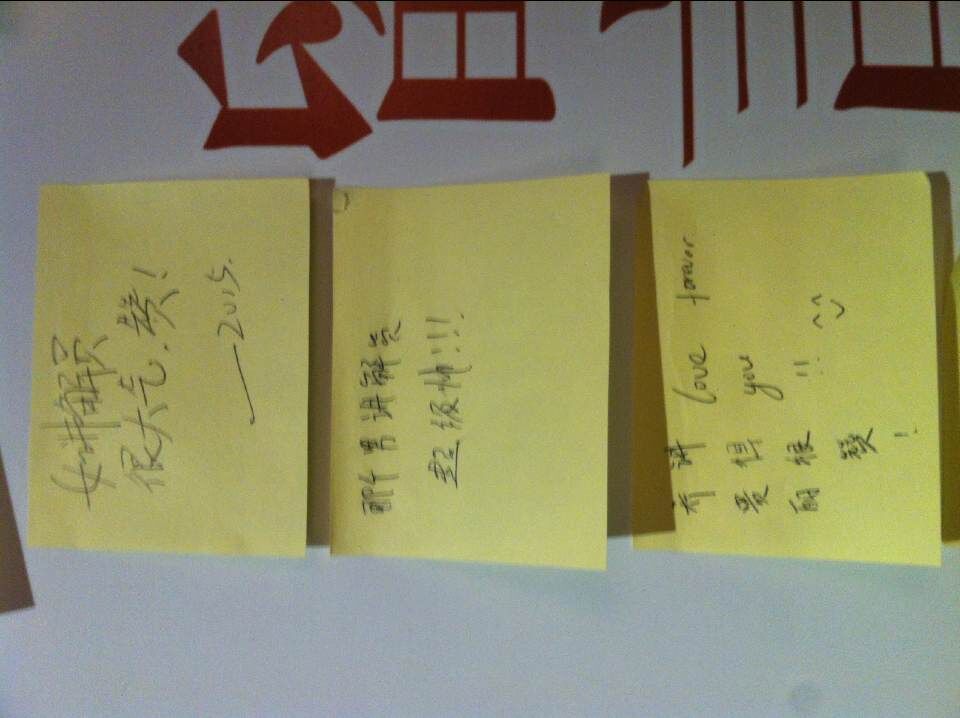 女讲解员
很大气.赞!
——2015.
那个男讲解员
超级帅!!!
讲 love forever
爱 you
很 !! ^^
赞
!